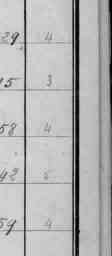 29 4
15 3
58 4
42 5
59 4